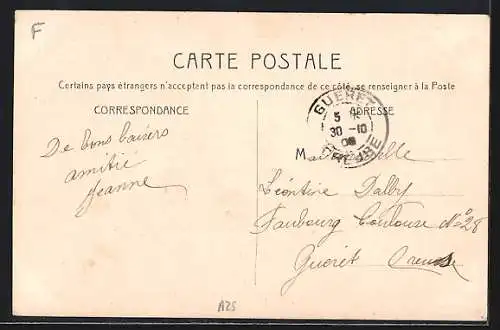 F
CARTE POSTALE
Certains pays étrangers n'acceptent pas la correspondance de ce côté, se renseigner à la Poste
CORRESPONDANCE
ADRESSE
GUERET
5
30 -10
08
CREUSE
De bons baisers
amitié
Jeanne
Léontine Dalby
Faubourg Toulouse N° 28
Guéret Creuse
A25